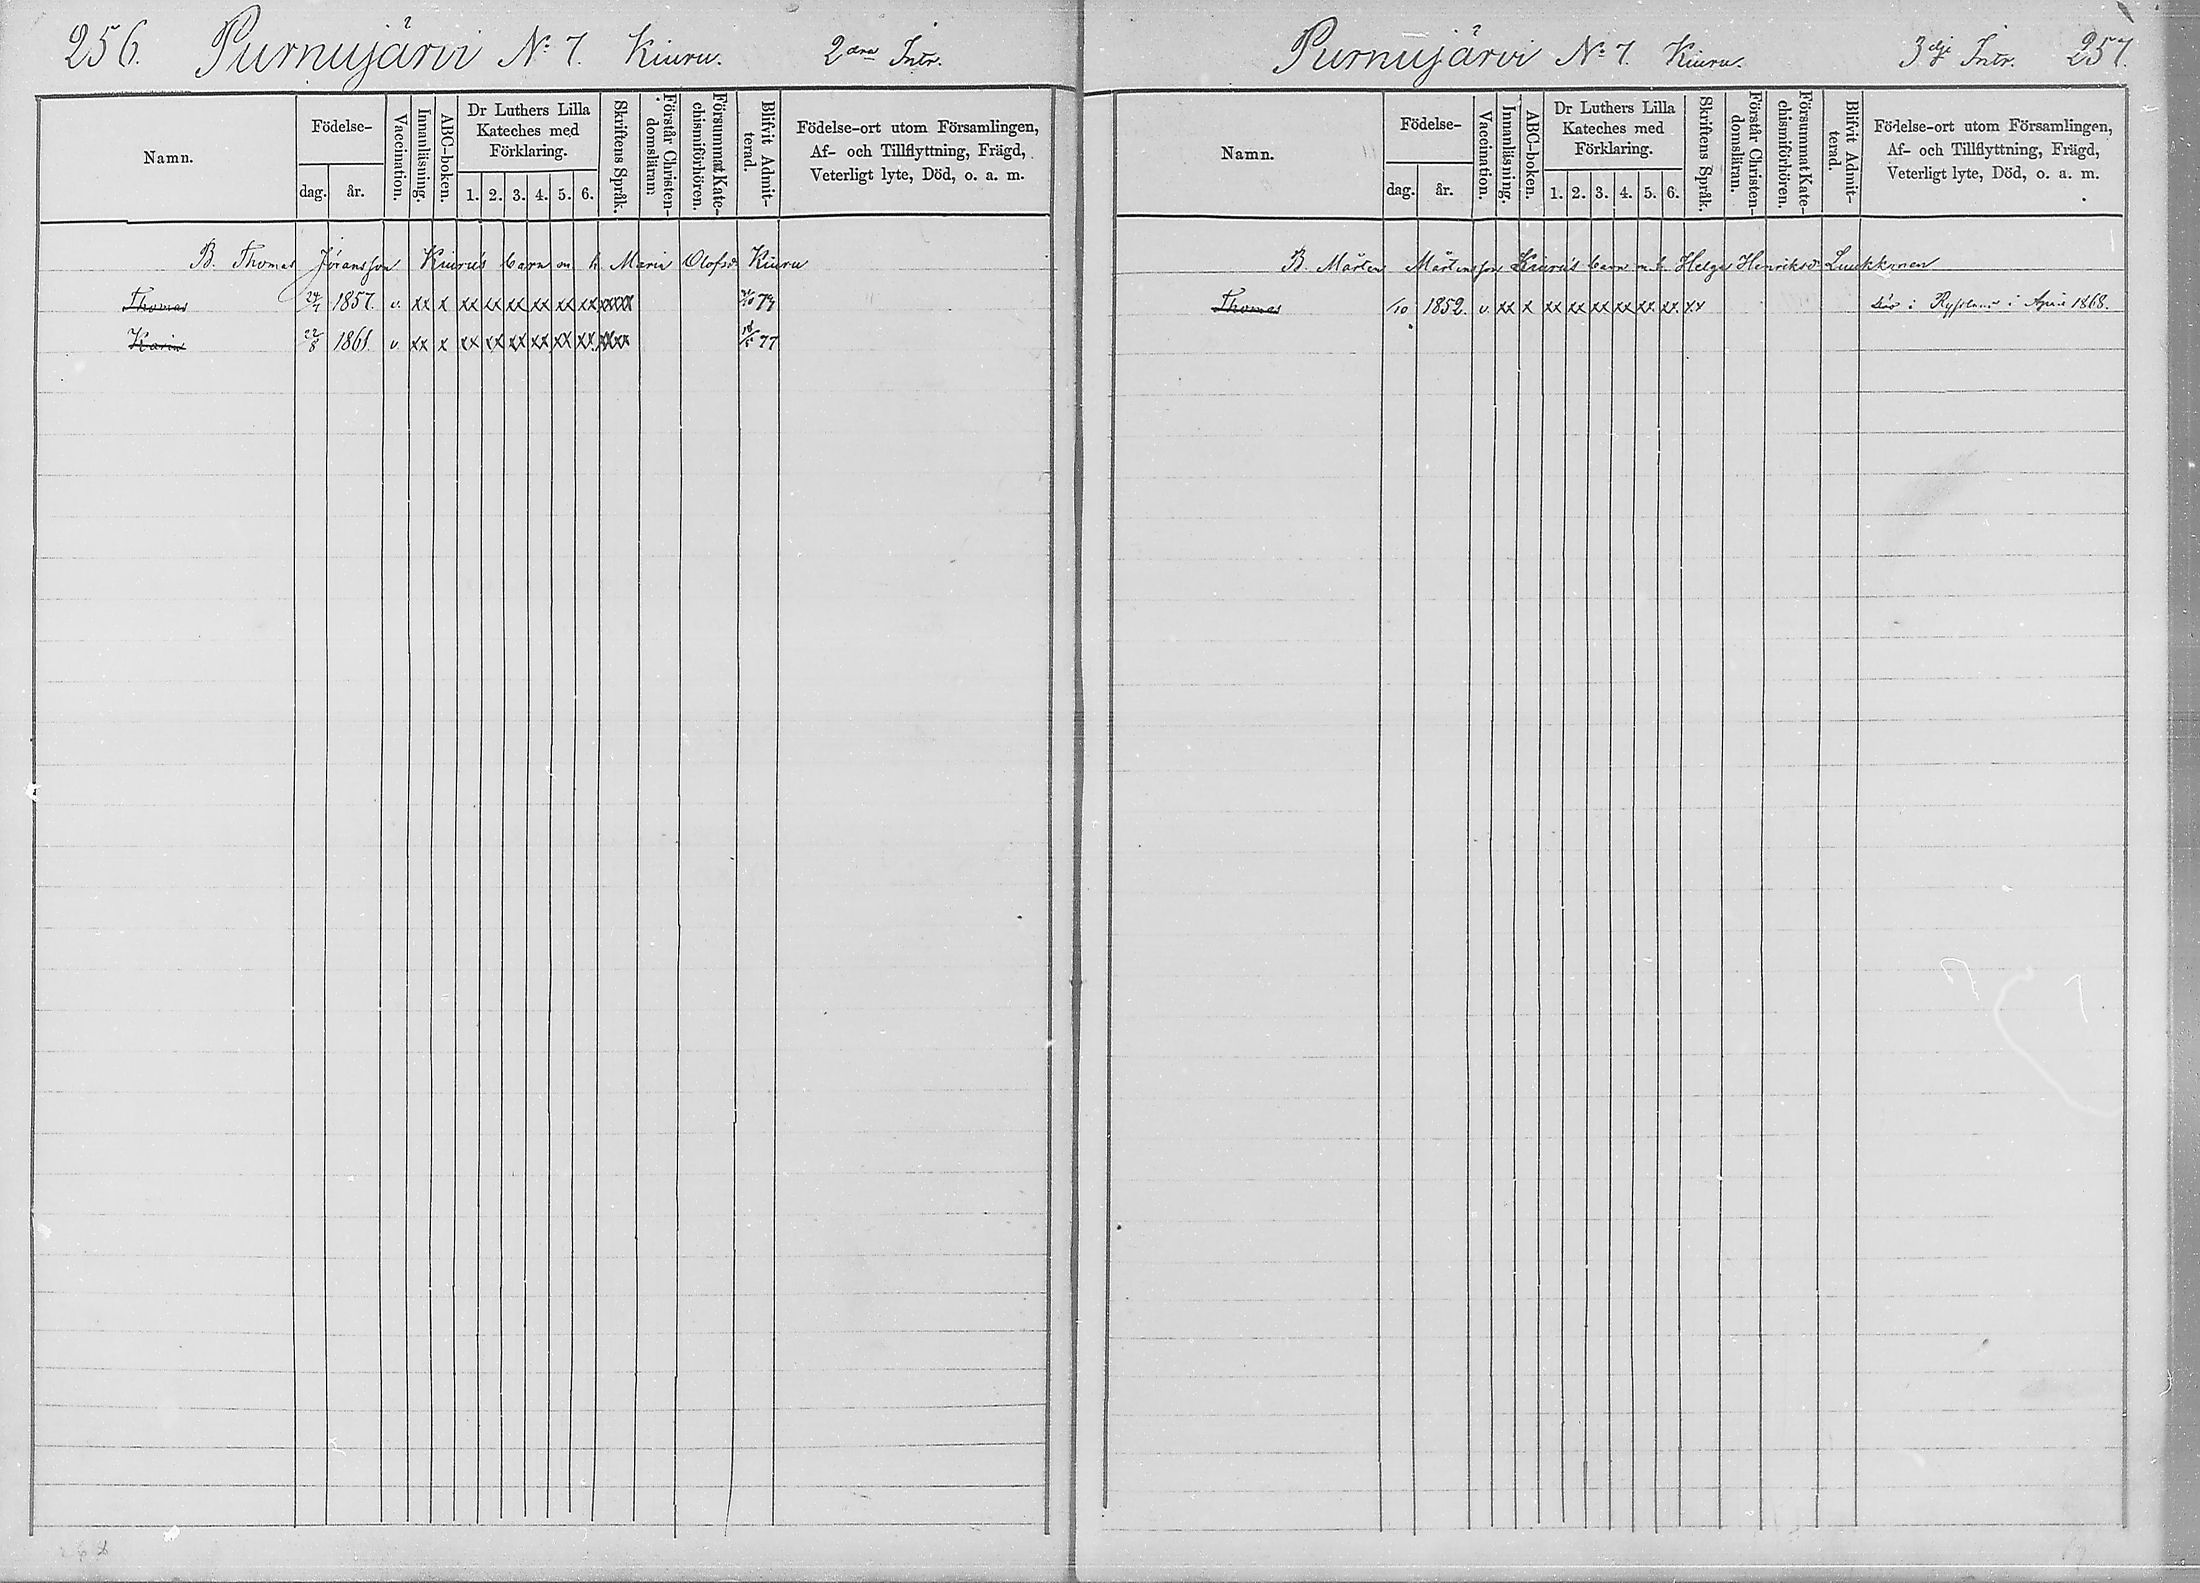 256. Purnujärvi No 7. Kiuru. 2dra Intr.
Namn.
Födelse-
dag. år.
Vaccination.
Innanläsning.
ABC-boken.
Dr Luthers Lilla
Kateches med
Förklaring.
1. 2. 3. 4. 5. 6.
Skriftens Språk.
Förstår Christen-
domsläran.
Försummat Kate-
chismiförhören.
Blifvit Admit-
terad.
Födelse-ort utom Församlingen,
Af- och Tillflyttning, Frägd,
Veterligt lyte, Död, o. a. m.
B. Thomas Jöransson Kiuru's barn m. h. Maria Olofsd. Kiuru
Thomas 24/7 1857. v. xx x xx xx xx xx xx xx xxxx
Karin 22/8 1861. v xx x xx xx xx xx xx xx xxx 77
Purnujärvi No 7. Kiuru. 3dje Intr. 257.
Namn.
Födelse-
dag. år.
Vaccination.
Innanläsning.
ABC-boken.
Dr Luthers Lilla
Kateches med
Förklaring.
1. 2. 3. 4. 5. 6.
Skriftens Språk.
Förstår Christen-
domsläran.
Försummat Kate-
chismiförhören.
Blifvit Admit-
terad.
Födelse-ort utom Församlingen,
Af- och Tillflyttning, Frägd,
Veterligt lyte, Död, o. a. m.
B. Mårten Mårtensson Kiuru's barn m. h. Helga Henriksd. Luukkonen
Thomas /10 1852. v. xx x xx xx xx xx xx. xx. xx död i Ryssland i April 1868.